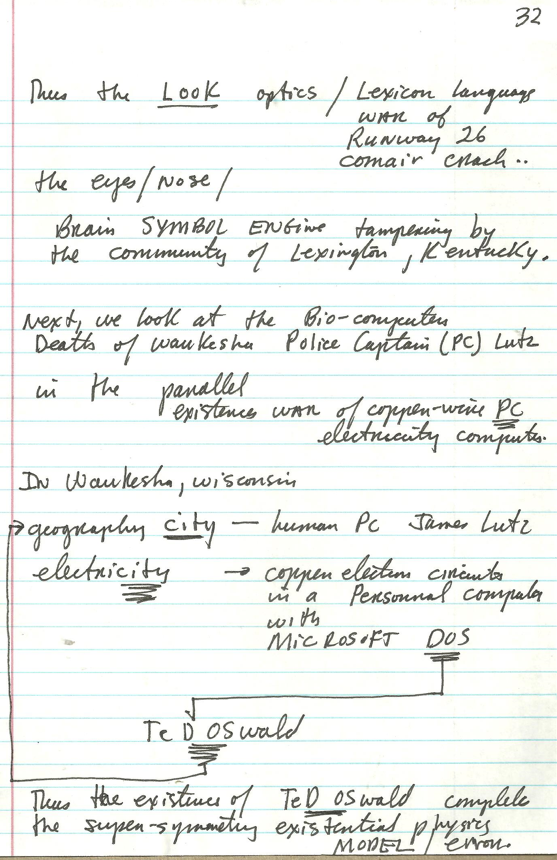 32
Thus the LOOK optics / Lexicon language
war of
Runway 26
comair crash..
the eyes/nose/
Brain SYMBOL ENGINE tampering by
the community of Lexington, Kentucky.
Next, we look at the Bio-computer
Deaths of Waukesha Police Captain (PC) Lutz
in the parallel
existences war of copper-wire PC
electricity computer.
In Waukesha, Wisconsin
geography city — human PC James Lutz
electricity → copper electron circuits
in a Personnal computer
with
MICROSOFT DOS
TeD OSwald
Thus the existence of TeD OSwald complete
the super-symmetry existential physics
MODEL / error.